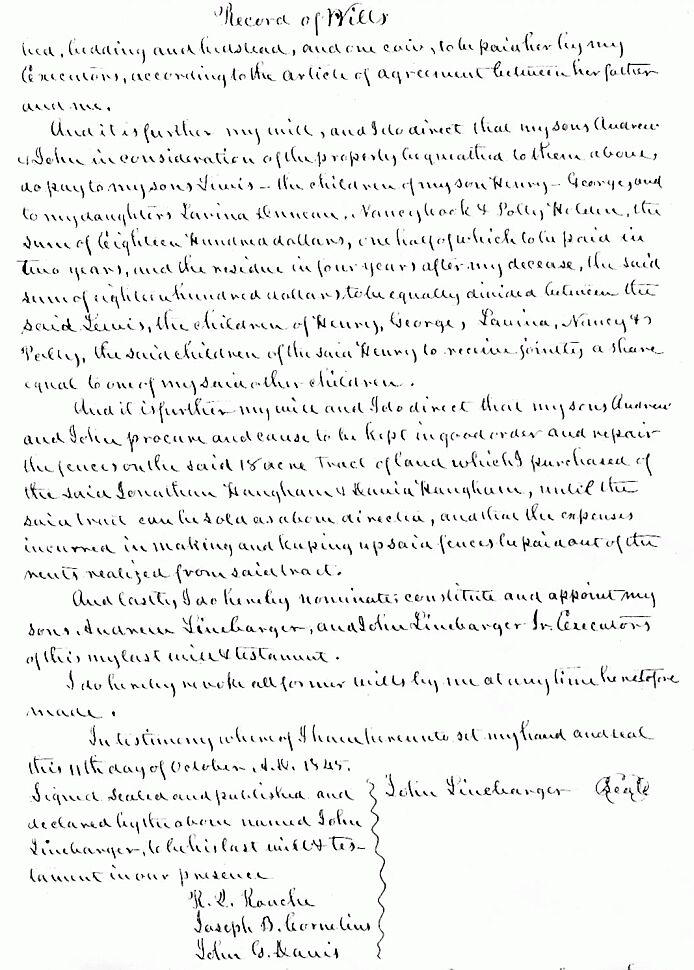 Record of Wills
bed, bedding and bedstead, and one cow, to be paid her by my
Executors, according to the article of agreement between her father
and me.
And it is further my will, and I do direct that my sons Andrew
& John in consideration of the property bequeathed to them above,
do pay to my sons Lewis - the children of my son Henry - George, and
to my daughters Lavina Duncan, Nancy Cook & Polly Holden, the
sum of Eighteen Hundred dollars, one half of which to be paid in
two years, and the residue in four years after my decease, the said
sum of eighteen hundred dollars, to be equally divided between the
said Lewis, the children of Henry, George, Lavina, Nancy &
Polly, the said children of the said Henry to receive jointly a share
equal to one of my said other children.
And it is further my will and I do direct that my sons Andrew
and John procure and cause to be kept in good order and repair
the fences on the said 18 acre Tract of land which I purchased of
the said Jonathan Hangham & David Hangham, until the
said tract can be sold as above directed, and that the expenses
incurred in making and keeping up said fences be paid out of the
rents realized from said tract.
And lastly, I do hereby nominate, constitute and appoint my
sons, Andrew Linebarger, and John Linebarger Jr. Executors
of this my last will & testament.
I do hereby revoke all former wills by me at any time heretofore
made.
In testimony whereof I have hereunto set my hand and seal
this 11th day of October, A.D. 1845.
Signed sealed and published and
declared by the above named John
Linebarger, to be his last will & tes-
tament in our presence
John Linebarger Seal
R. Q. Roache
Joseph B. Cornelius
John G. Davis